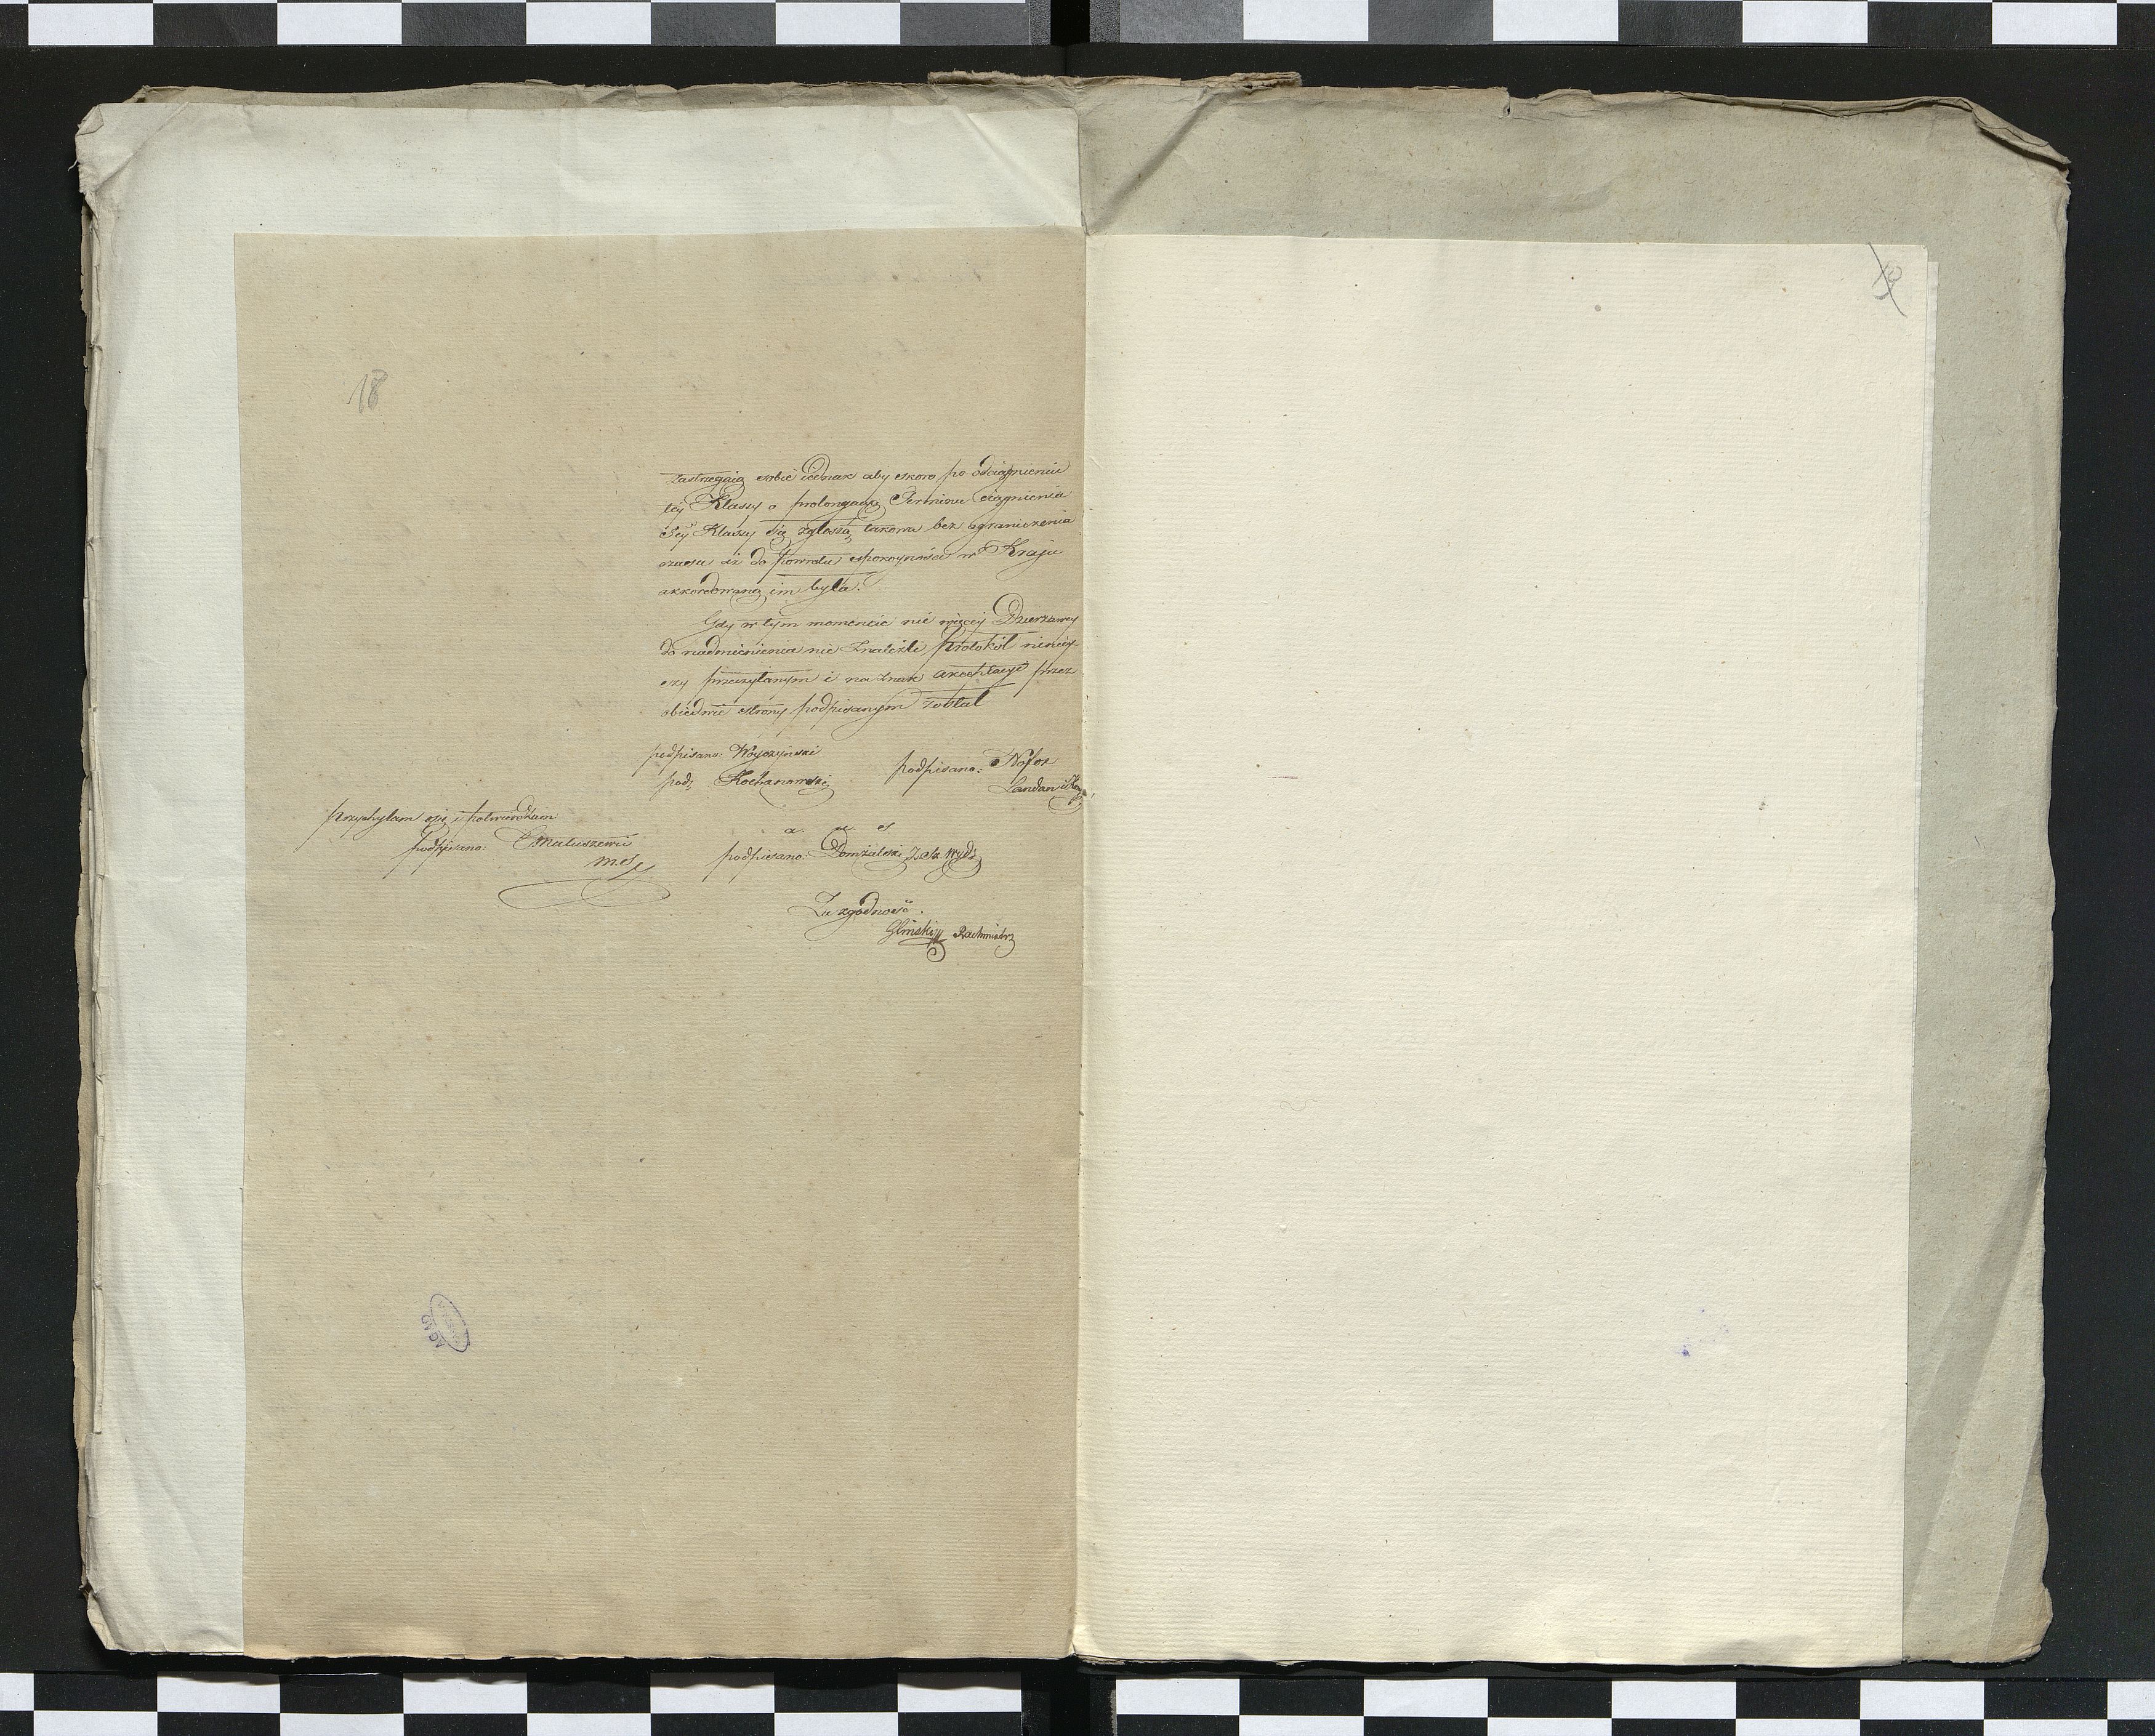 18
zastrzegaią sobie iednak aby skoro po odciągnieniu
tey Klassy o prolongacyą Terminu ciągnienia
5ey Klassy się zgłoszą takowa bez ograniczenia
czasu aż do powrotu spokoyności w Kraju
akkordowaną im była.
Gdy w tym momencie nic więcej Dzierzawcy
do nadmienienia nie znaleźli Protokół niniey-
szy przeczytanym i na znak przez
obiedwie strony podpisanym został
podpisano: Woyczyński
podpisano: Nofok
pods Kochanowski
Landau
Przychylam się i potwierdzam
podpisano: Matuszewic
a. u. s
podpisano: Domżalski Z. Sek. Wydz
Za zgodność.
Gliński Rachmistrz
AGAD